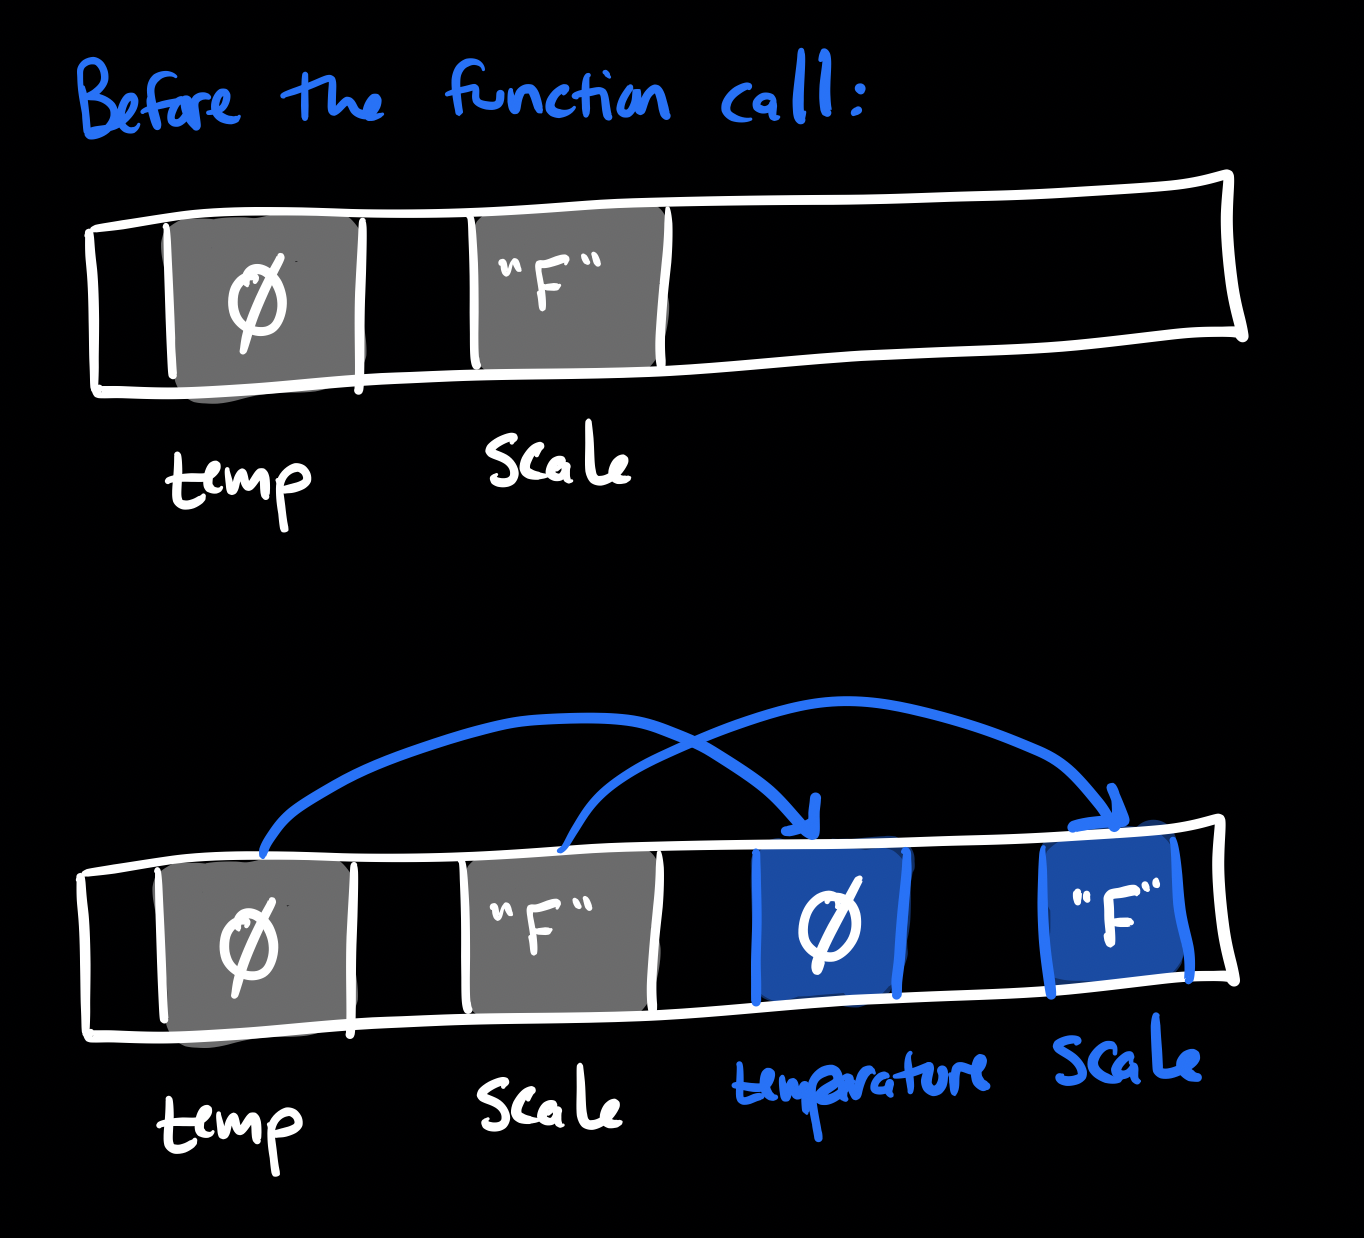 Before the function call:
Ø "F"
temp scale
Ø "F" Ø "F"
temp scale temprature scale